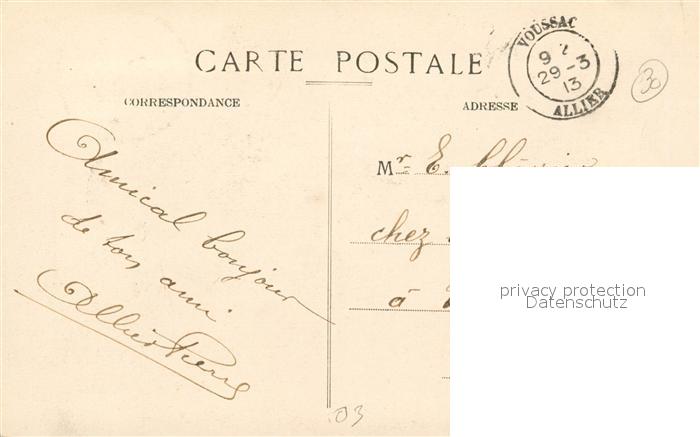 CARTE POSTALE
VOUSSAC
9
29-3
13
ALLIER
30
CORRESPONDANCE
ADRESSE
Amical bonjour
de ton ami
Allier Pierre
Mr. E.
chez
à
privacy protection
Datenschutz
03